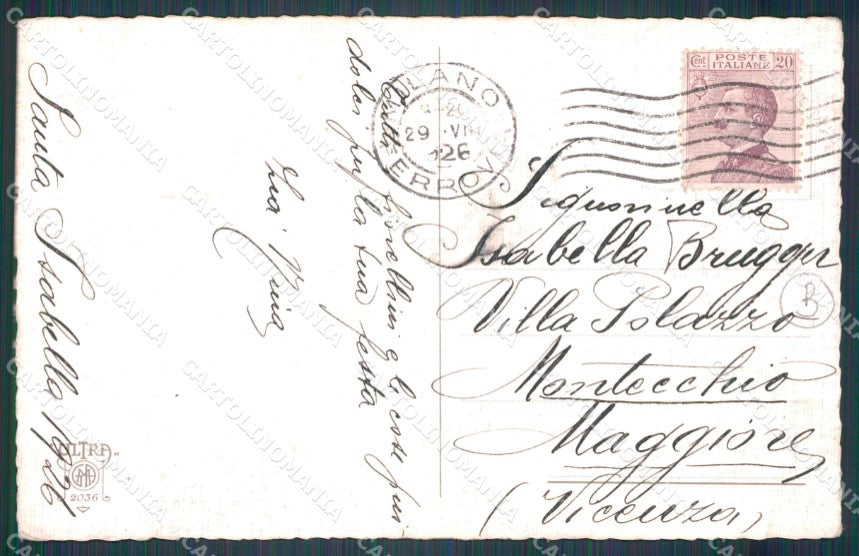 Santa Isabella 1926
Tutti i fiorellini e le cose più
dolci per la tua festa
zia
MILANO
29 . VIII
926
FERROVIA
POSTE
ITALIANE
Cent 20
Signorinella
Isabella Brugger
Villa Polazzo
Montecchio
Maggiore
(Vicenza)
B
DLTRF
2036
CARTOLINOMANIA